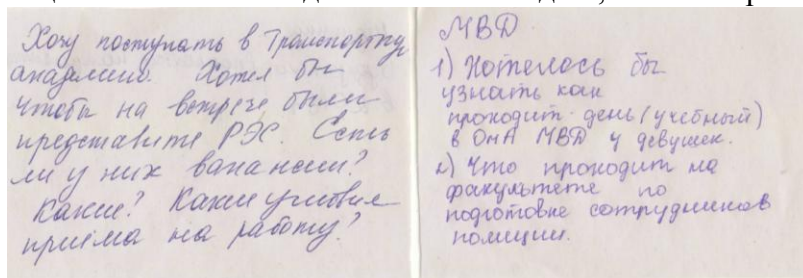 Хочу поступать в Транспортную
академию. Хотел бы
чтобы на встрече были
представите РЭС. Есть
ли у них вакансии?
Какие? Какие условия
приёма на работу?
МВД
1) Хотелось бы
узнать как
проходит день (учебный)
в ОмА МВД у девушек.
2) Что проходит на
факультете по
подготовке сотрудников
полиции.